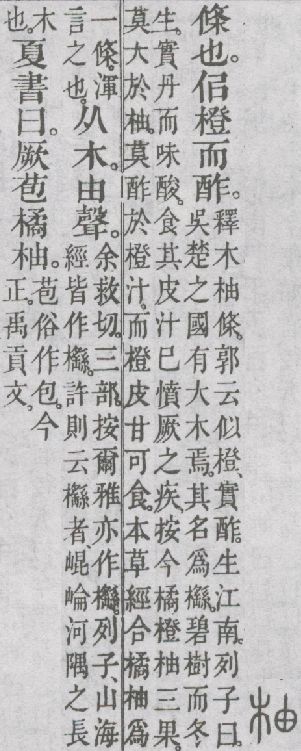 柚
條也。佀橙而酢。
釋木柚條。郭云似橙、實酢。生江南。列子曰。
吳楚之國有大木焉。其名爲櫾。碧樹而冬
生。實丹而味酸。食其皮汁已憤厥之疾。按今橘橙柚三果
莫大於柚。莫酢於橙汁。而橙皮甘可食。本草經合橘柚爲
一條。渾
言之也。
从木。由聲。
余救切。三部。按爾雅亦作櫾。列子、山海
經皆作櫾。許則云櫾者、崐崘河隅之長
木
也。
夏書曰。厥苞橘柚。
苞俗作包。今
正。禹貢文。